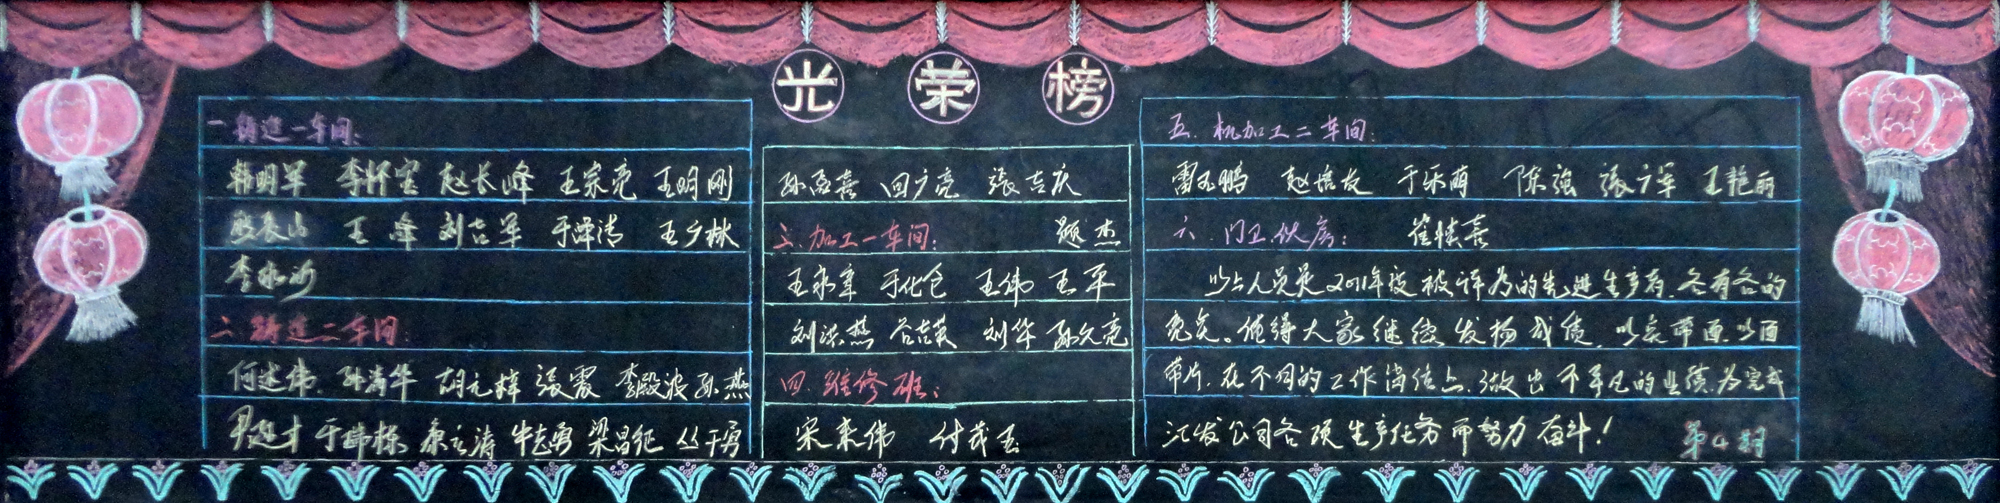 光荣榜
一.铸造一车间:
韩明军 李怀宝 赵长峰 王宗亮 王明刚
殷长山 王峰 刘吉军 于泽清 王少林
李永沂
二.铸造二车间:
何述伟 孙满华 胡元梓 张震 李殿波 孙燕
尹超才 于瑞栋 秦之涛 牛志勇 梁昌征 丛于勇
孙喜 回广亮 張吉庆
三.加工一车间: 题杰
王永章 于化仓 王伟 王平
刘洪燕 谷吉英 刘华 孙久亮
四.维修班:
宋来伟 付茂玉
五.机加工二车间:
雷玉鹏 赵培友 于乐萌 陈强 張广军 王艳丽
六.门卫.伙房: 崔怀喜
以上人员是2011年度被评为的先进生产者.各有各的
亮点。值得大家继续发扬成绩,以点带面.以面
带片.在不同的工作岗位上.做出不平凡的业绩.为完成
汇发公司各项生产任务而努力奋斗!
第4期